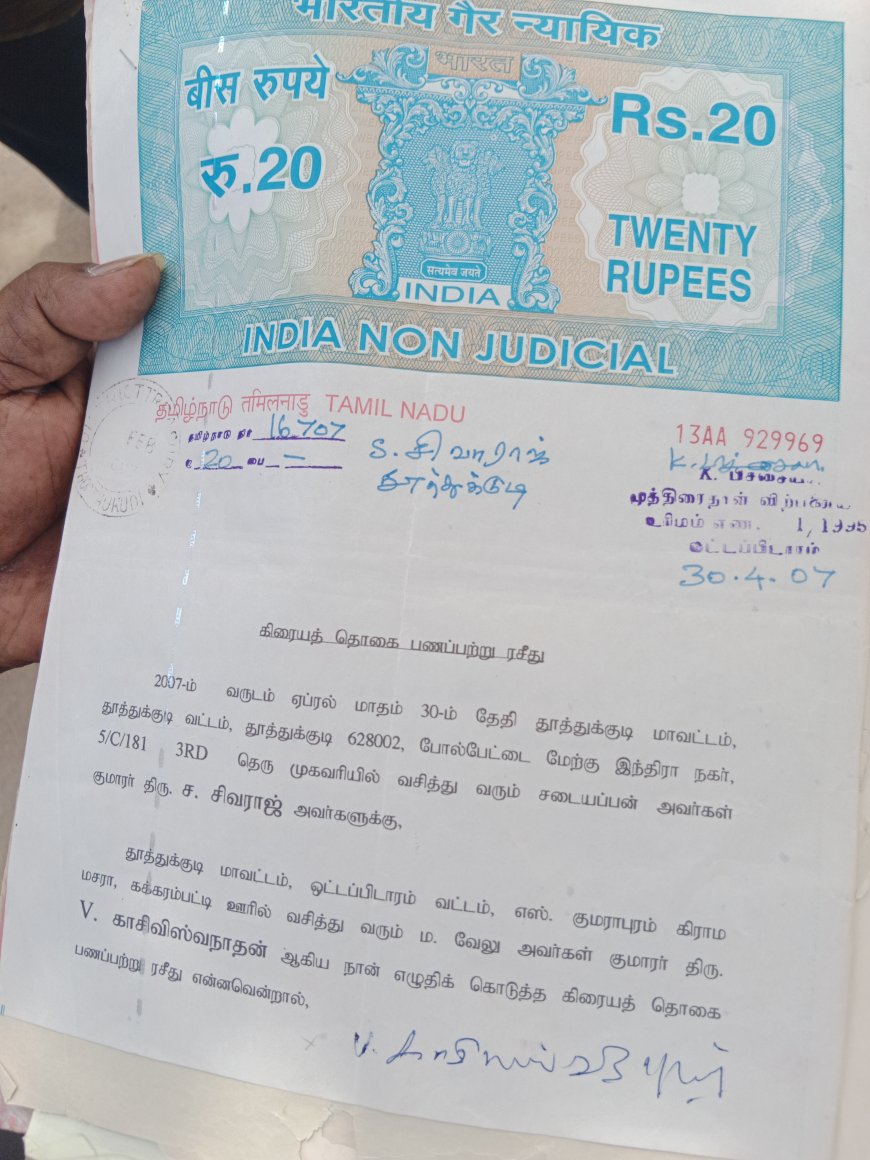 भारतीय गैर न्यायिक
भारत
बीस रुपये
रु.20
Rs.20
TWENTY
RUPEES
सत्यमेव जयते
INDIA
INDIA NON JUDICIAL
தமிழ்நாடு तमिलनाडु TAMIL NADU
13AA 929969
16707
20
S. சிவராஜ்
தூத்துக்குடி
FEB
முத்திரைதாள் விற்பனை
உரிமம் எண. 1/1995
ஒட்டப்பிடாரம்
30.4.07
கிரையத் தொகை பணப்பற்று ரசீது
2007-ம் வருடம் ஏப்ரல் மாதம் 30-ம் தேதி தூத்துக்குடி மாவட்டம்,
தூத்துக்குடி வட்டம், தூத்துக்குடி 628002, போல்பேட்டை மேற்கு இந்திரா நகர்,
5/C/181 3RD தெரு முகவரியில் வசித்து வரும் சடையப்பன் அவர்கள்
குமாரர் திரு. ச. சிவராஜ் அவர்களுக்கு,
தூத்துக்குடி மாவட்டம், ஒட்டப்பிடாரம் வட்டம், எஸ். குமராபுரம் கிராம
மசரா, கக்கரம்பட்டி ஊரில் வசித்து வரும் ம. வேலு அவர்கள் குமாரர் திரு.
V. காசிவிஸ்வநாதன் ஆகிய நான் எழுதிக் கொடுத்த கிரையத் தொகை
பணப்பற்று ரசீது என்னவென்றால்,